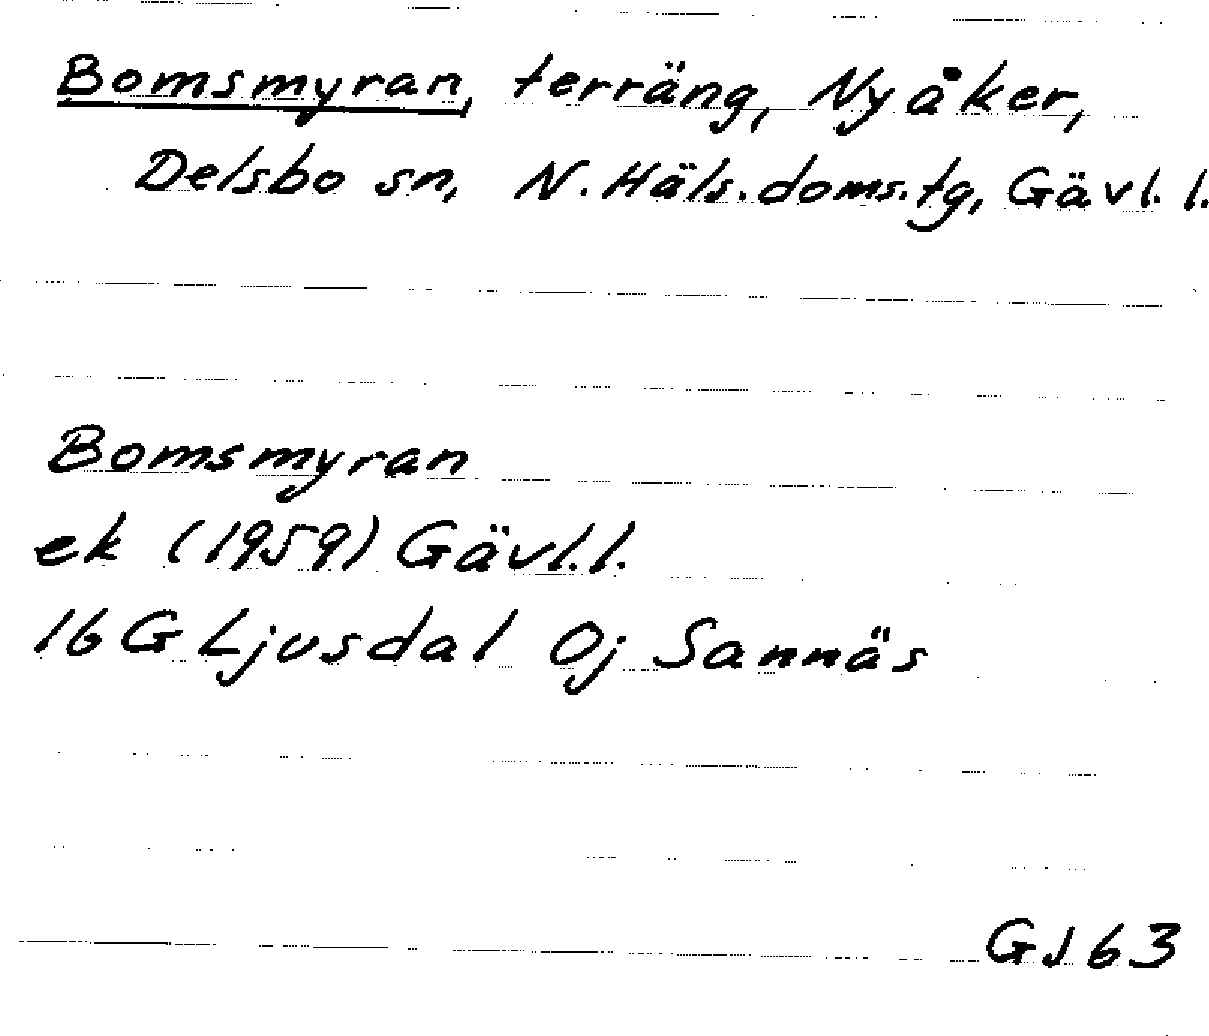 Bomsmyran, terräng, Nyåker,
Delsbo sn, N. Häls. doms. tg, Gävl. l.
Bomsmyran
ek (1959) Gävl. l.
16 G Ljusdal 0j Sannäs
GJ 63